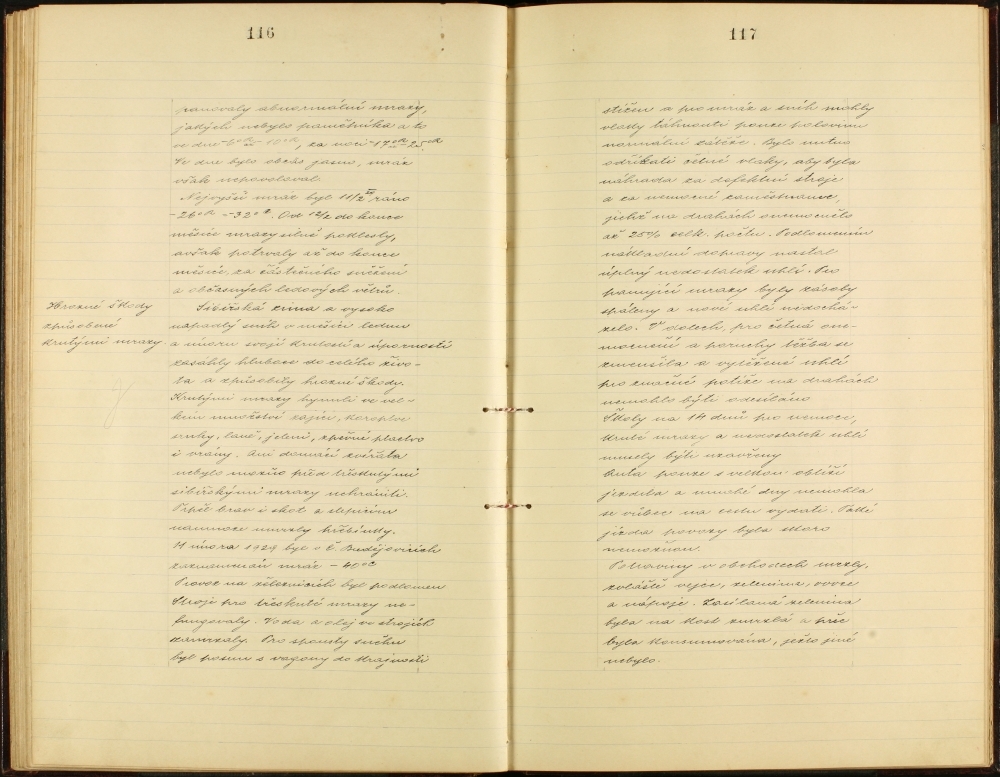 116
panovaly abnormální mrazy,
jakých nebylo pamětníka a to
ve dne za noci
Ve dne bylo občas jasno, mráz
však nepovoloval.
Nejvyšší mráz byl 11/2 ráno
-26 -32°. Od 12/2 do konce
měsíce mrazy silně podlehly,
avšak potrvaly až do konce
měsíce, za částečného sněžení
a občasných ledových větrů.
Hrozné škody
způsobené
krutými mrazy.
Sibiřská zima a vysoko
napadlý sníh v měsíci lednu
a únoru svojí krutostí a úporností
zasáhly hluboce do celého živo-
ta a způsobily hrozné škody.
Krutými mrazy hynuli ve vel-
kém množství zajíci, koroptve
srnky, laně, jeleni, zpěvné ptactvo
i vrány. Ani domácí zvířata
nebylo možno před třeskutými
sibiřskými mrazy uchrániti.
brav i skot a slepicím
namnoze umrzly hřebínky.
11 února 1929 byl v Č. Budějovicích
zaznamenán mráz - 40°C
Provoz na železnicích byl podlomen
Stroje pro třeskuté mrazy ne-
fungovaly. Voda a olej ve strojích
zamrzaly. Pro spousty sněhu
byl posun s vagony do krajnosti
117
stížen a pro mráz a sníh mohly
vlaky táhnouti pouze polovinu
normální zátěže. Bylo nutno
odříkati četné vlaky, aby byla
náhrada za defektní stroje
a za nemocné zaměstnance,
jichž na drahách onemocnělo
až 25% celk. počtu. Podlomením
nákladní dopravy nastal
úplný nedostatek uhlí. Pro
panující mrazy byly zásoby
spáleny a nové uhlí nedochá-
zelo. V dolech, pro četná one-
mocnění a poruchy těžba se
zmenšila a vytěžené uhlí
pro značné potíže na drahách
nemohlo býti odesíláno
Školy na 14 dnů pro nemoce,
kruté mrazy a nedostatek uhlí
musely býti uzavřeny
pouze s velkou obtíží
jezdila a mnohé dny nemohla
se vůbec na cestu vydati. Též
jízda povozy byla skoro
nemožnou.
Potraviny v obchodech mrzly,
zvláště vejce, zelenina, ovoce
a nápoje. Zasílaná zelenina
byla na kost zmrzlá a přec
byla konsumována, ježto jiné
nebylo.